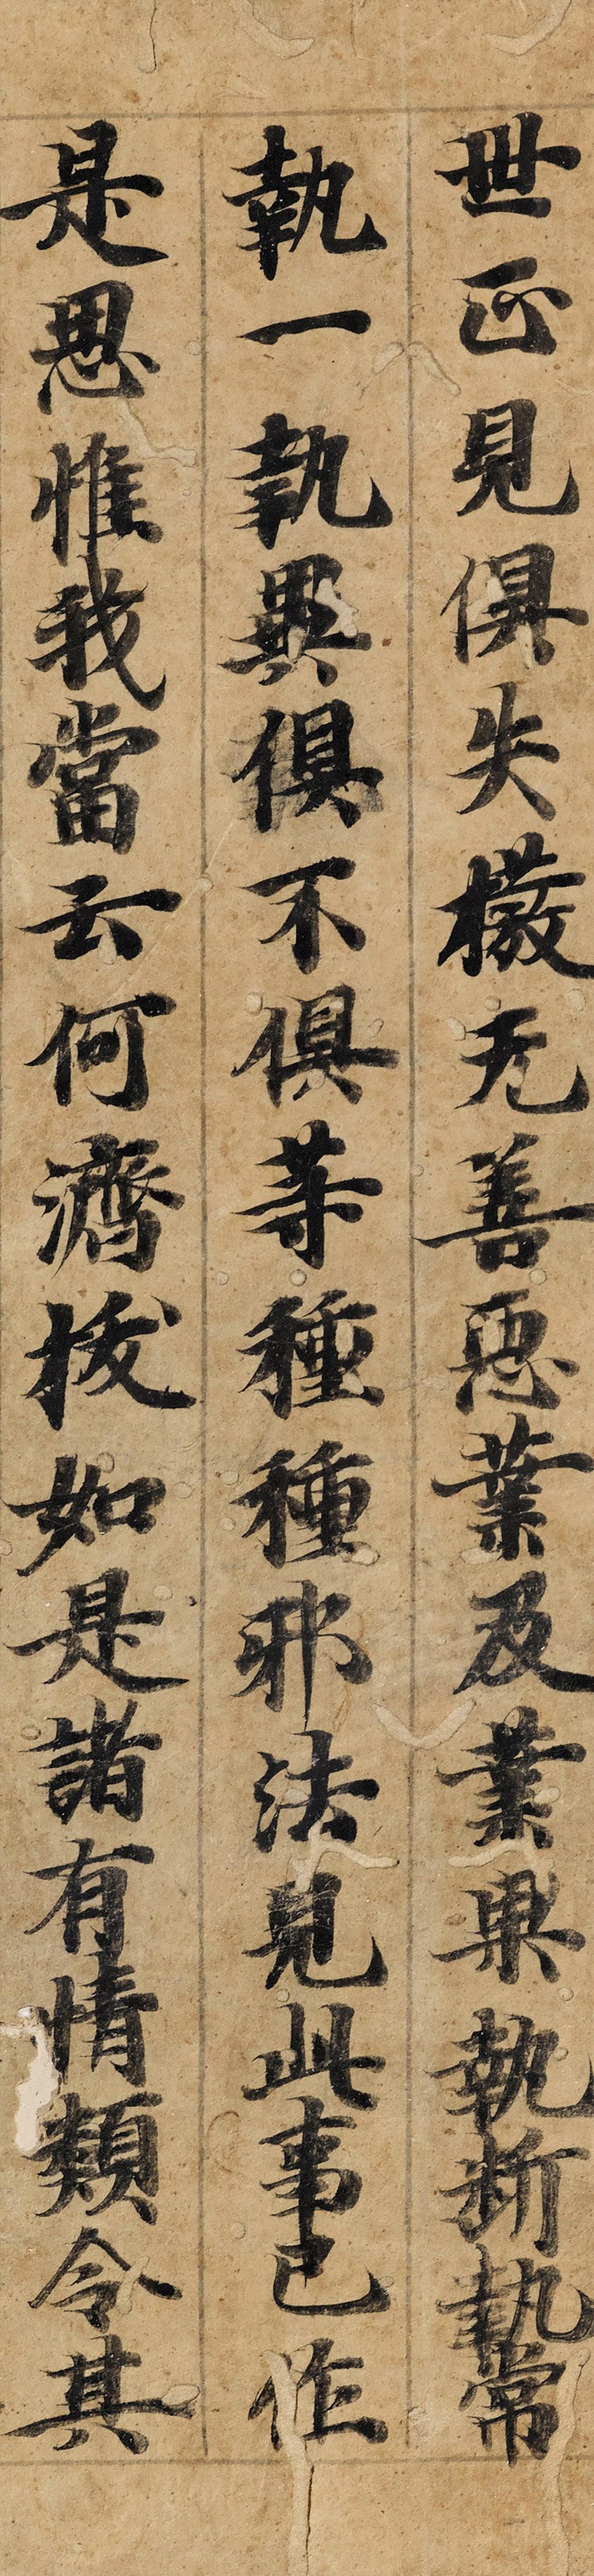 世正見俱失撥无善惡業及業果執斷執常
執一執異俱不俱等種種邪法見此事已作
是思惟我當云何濟拔如是諸有情類令其